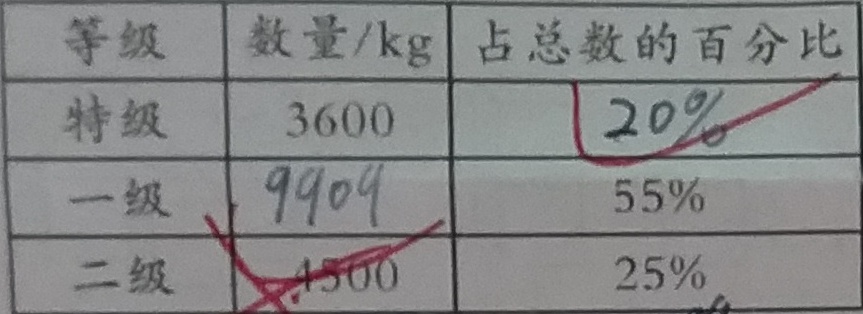 等级 数量/kg 占总数的百分比
特级 3600 20%
一级 9909 55%
二级 4500 25%